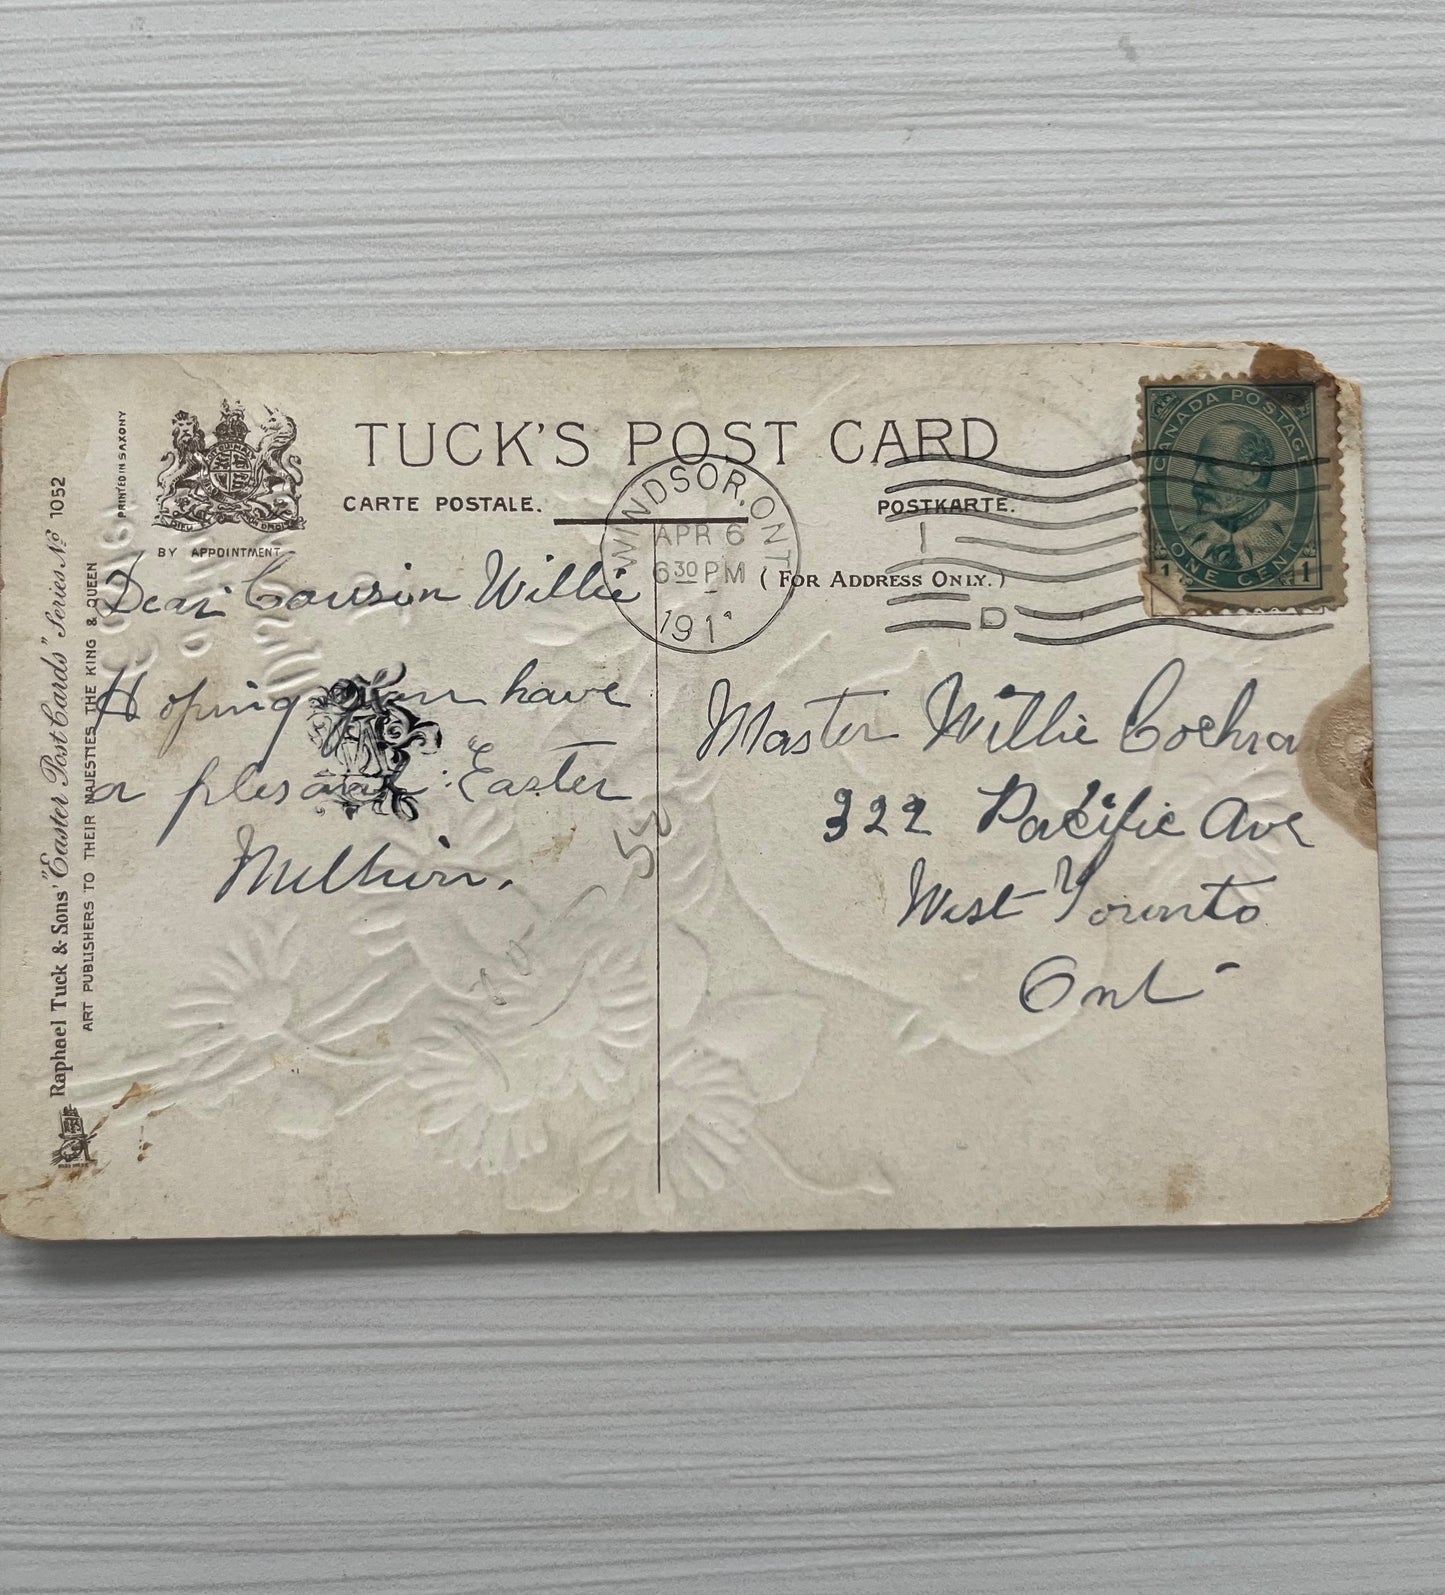 TUCK'S POST CARD
CARTE POSTALE.
POSTKARTE.
(FOR ADDRESS ONLY.)
PRINTED IN SAXONY
DIEU DROIT
BY APPOINTMENT
Raphael Tuck & Sons' "Easter Post Cards" Series No 1052
ART PUBLISHERS TO THEIR MAJESTIES THE KING & QUEEN
WINDSOR, ONT
APR 6
6 30 PM
191
D
CANADA POSTAGE
1 ONE CENT 1
Dear Cousin Willie
Hoping you have
a plesant Easter
Master Willie Cochra
322 Pacific Ave
West Toronto
Ont